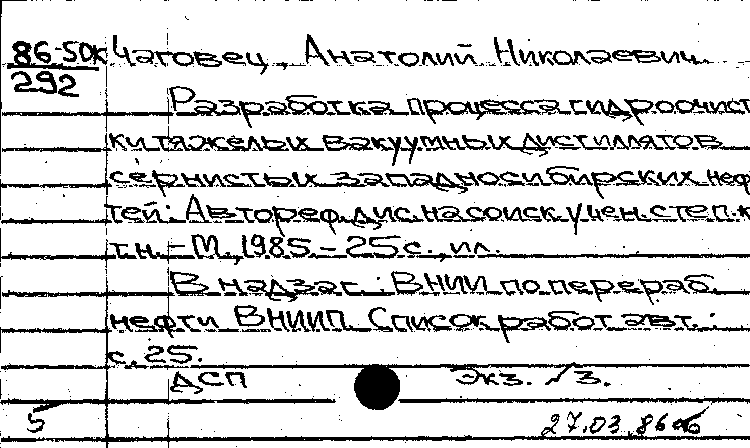 86-50к Чаговец, Анатолий Николаевич.
292
Разработка процесса гидроочист
ки тяжелых вакуумных дистиллятов
сернистых западносибирских неф
тей: Автореф. дис. на соиск. учен. степ. к.
т.н. - М., 1985. - 25 с., ил.
В надзаг.: ВНИИ по перераб.
нефти ВНИИП. Список работ авт.:
с. 25.
ДСП Экз. √3.
5 27.03.86